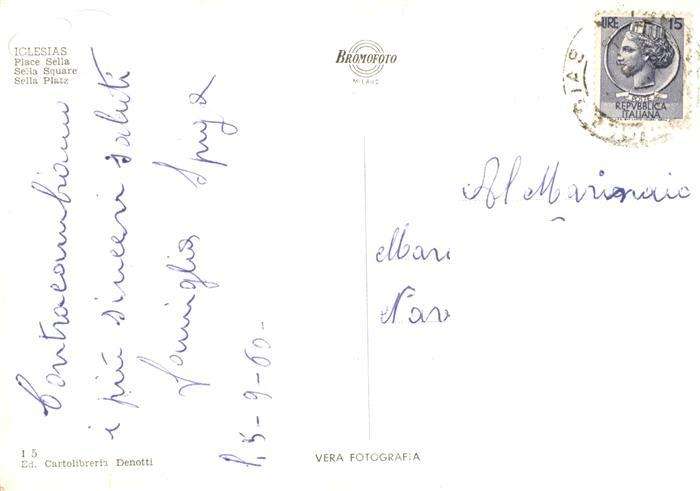 IGLESIAS
Place Sella
Sella Square
Sella Platz
BROMOFOTO
MILANO
LIRE 15
POSTE
REPVBBLICA
ITALIANA
Contracambiamo
i più sinceri saluti
famiglia Spiga
5-9-60-
Al Marinaio
Mari
Nav
15
Ed. Cartolibreria Denotti
VERA FOTOGRAFIA